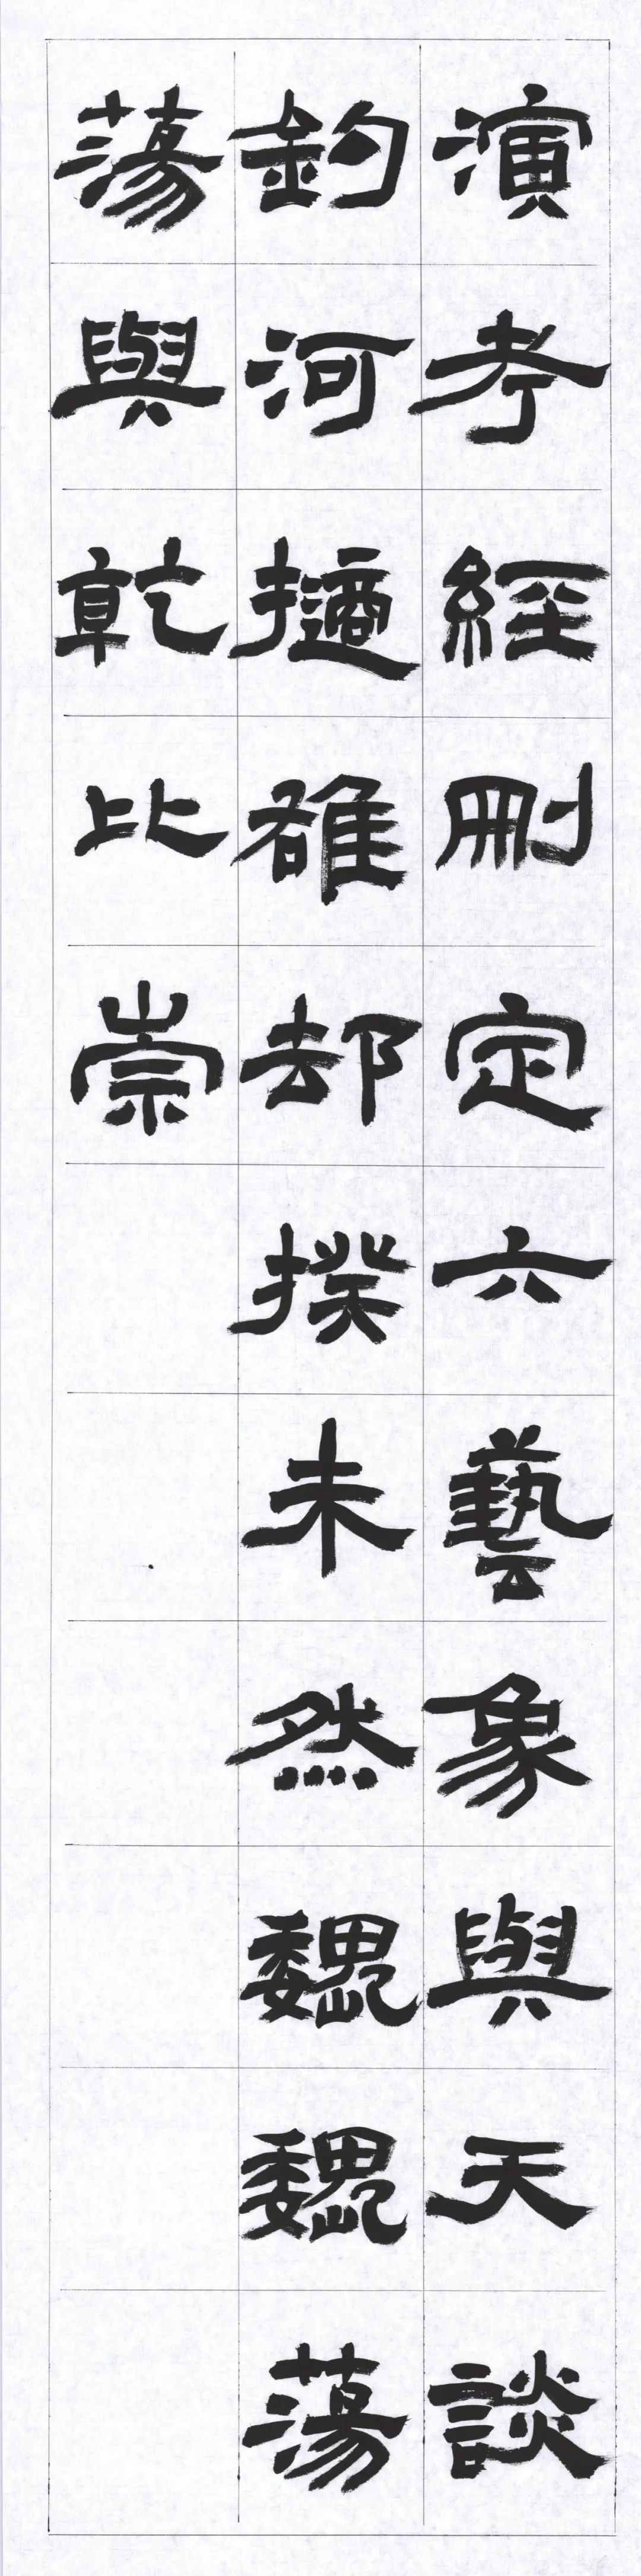 演考經刪定六藝象與天談
鈎河擿雒却揆未然巍巍蕩
蕩與乾比崇